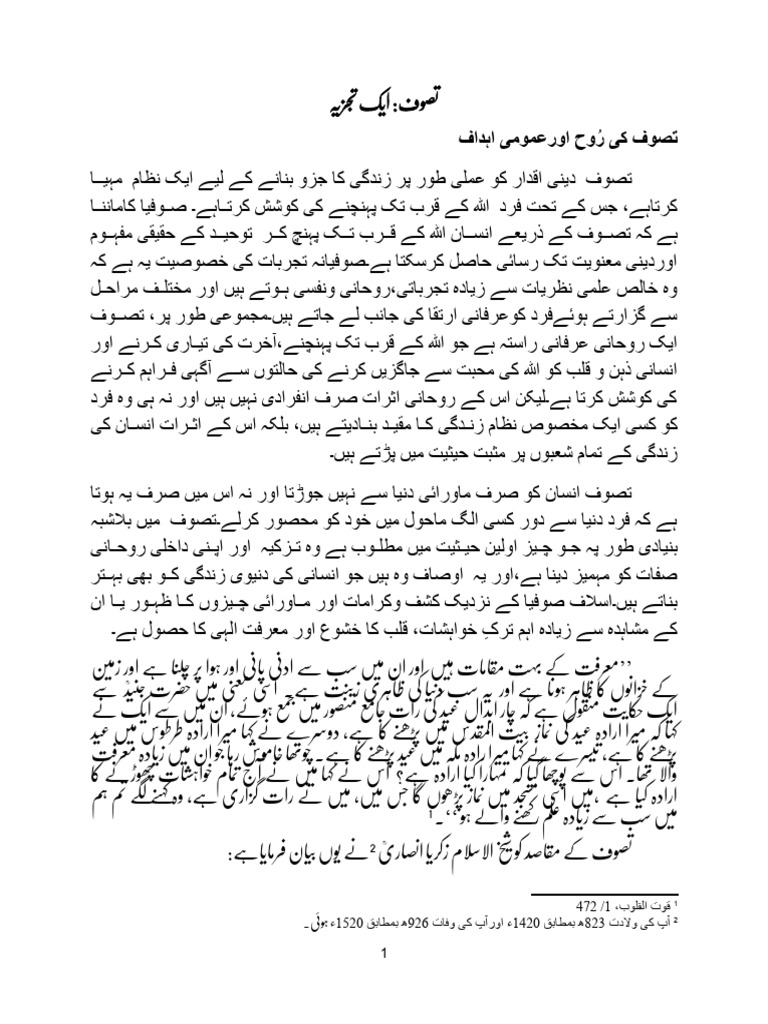 تصوف: ایک تجزیہ
تصوف کی رُوح اورعمومی اہداف
تصوف دینی اقدار کو عملی طور پر زندگی کا جزو بنانے کے لیے ایک نظام مہیا
کرتاہے، جس کے تحت فرد الله کے قرب تک پہنچنے کی کوشش کرتاہے۔ صوفیا کاماننا
ہے کہ تصوف کے ذریعے انسان الله کے قرب تک پہنچ کر توحید کے حقیقی مفہوم
اوردینی معنویت تک رسائی حاصل کرسکتا ہے۔صوفیانہ تجربات کی خصوصیت یہ ہے کہ
وہ خالص علمی نظریات سے زیادہ تجرباتی،روحانی ونفسی ہوتے ہیں اور مختلف مراحل
سے گزارتے ہوئےفرد کوعرفانی ارتقا کی جانب لے جاتے ہیں۔مجموعی طور پر، تصوف
ایک روحانی عرفانی راستہ ہے جو الله کے قرب تک پہنچنے،آخرت کی تیاری کرنے اور
انسانی ذہن و قلب کو الله کی محبت سے جاگزیں کرنے کی حالتوں سے آگہی فراہم کرنے
کی کوشش کرتا ہے۔لیکن اس کے روحانی اثرات صرف انفرادی نہیں ہیں اور نہ ہی وہ فرد
کو کسی ایک مخصوص نظام زندگی کا مقید بنادیتے ہیں، بلکہ اس کے اثرات انسان کی
زندگی کے تمام شعبوں پر مثبت حیثیت میں پڑتے ہیں۔
تصوف انسان کو صرف ماورائی دنیا سے نہیں جوڑتا اور نہ اس میں صرف یہ ہوتا
ہے کہ فرد دنیا سے دور کسی الگ ماحول میں خود کو محصور کرلے۔تصوف میں بلاشبہ
بنیادی طور پہ جو چیز اولین حیثیت میں مطلوب ہے وہ تزکیہ اور اپنی داخلی روحانی
صفات کو مہمیز دینا ہے،اور یہ اوصاف وہ ہیں جو انسانی کی دنیوی زندگی کو بھی بہتر
بناتے ہیں۔اسلاف صوفیا کے نزدیک کشف وکرامات اور ماورائی چیزوں کا ظہور یا ان
کے مشاہدہ سے زیادہ اہم ترکِ خواہشات، قلب کا خشوع اور معرفت الہی کا حصول ہے۔
’’معرفت کے بہت مقامات ہیں اور ان میں سب سے ادنی پانی اور ہوا پر چلنا ہے اور زمین
کے خزانوں کا ظاہر ہونا ہے اور یہ سب دنیا کی ظاہری زینت ہے۔ اسی معنی میں حضرت جنیدؒ سے
ایک حکایت منقول ہے کہ چار ابدال عید کی رات جامع منصور میں جمع ہوئے، ان میں سے ایک نے
کہا کہ میرا ارادہ عید کی نماز بیت المقدس میں پڑھنے کا ہے، دوسرے نے کہا میرا ارادہ طرطوس میں عید
پڑھنے کا ہے، تیسرے نے کہا میرا ارادہ مکہ میں عید پڑھنے کا ہے۔ چوتھا خاموش رہا جو ان میں زیادہ معرفت
والا تھا۔ اس سے پوچھا گیا کہ تمہارا کیا ارادہ ہے؟ اس نے کہا میں نے آج تمام خواہشات چھوڑنے کا
ارادہ کیا ہے ،میں اسی مسجد میں نماز پڑھوں گا جس میں، میں نے رات گزاری ہے، وہ کہنے لگے تم ہم
میں سب سے زیادہ علم رکھنے والے ہو‘‘۔¹
تصوف کے مقاصد کو شیخ الاسلام زکریا انصاریؒ ² نے یوں بیان فرمایا ہے:
¹ قوت القلوب، 1/ 472
² آپ کی ولادت 823ھ بمطابق 1420ء اورآپ کی وفات 926ھ بمطابق 1520ء ہوئی۔
1